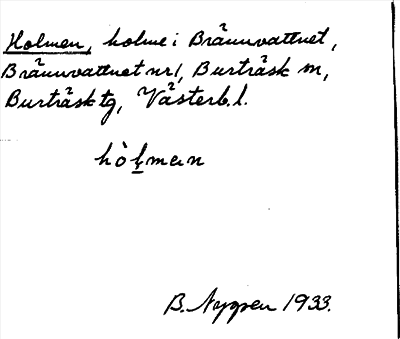 Holmen, holme i Brännvattnet,
Brännvattnet nr 1, Burträsk sn,
Burträsk tg, Västerb. l.
hòḷmαn
B. Nygren 1933.